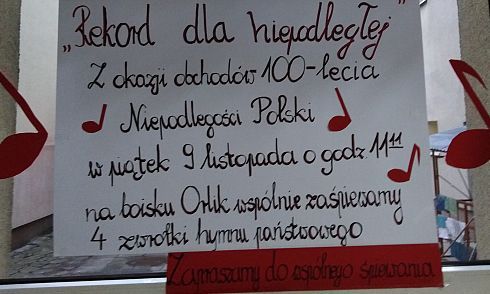 „Rekord dla niepodległej"
Z okazji obchodów 100-lecia
Niepodległości Polski
w piątek 9 listopada o godz. 11¹¹
na boisku Orlik wspólnie zaśpiewamy
4 zwrotki hymnu państwowego
Zapraszamy do wspólnego śpiewania